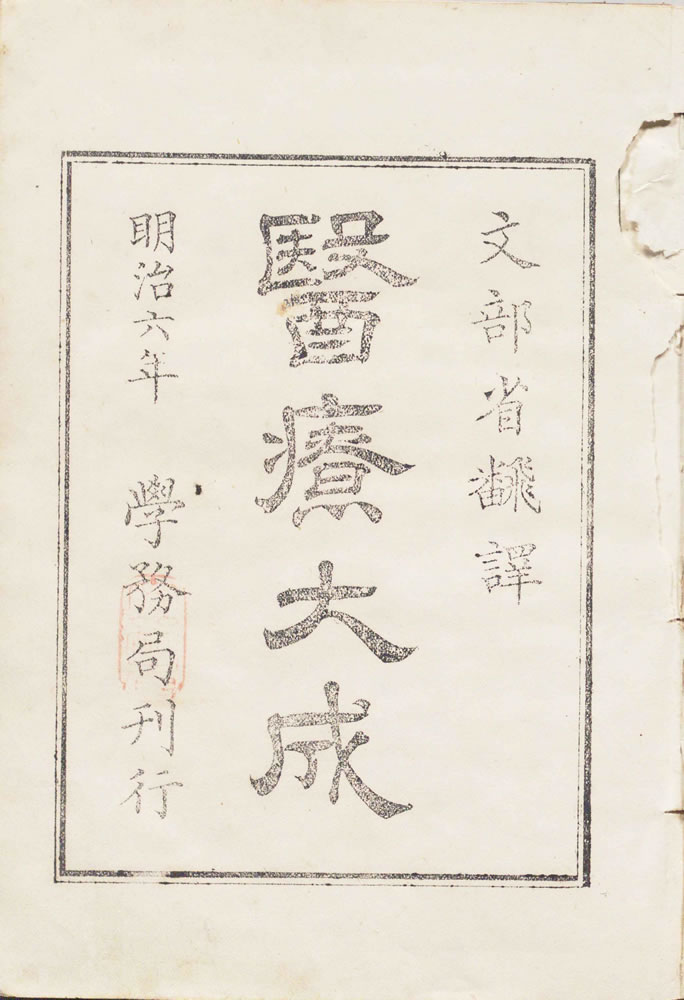 文部省飜譯
醫療大成
明治六年 學務局刊行